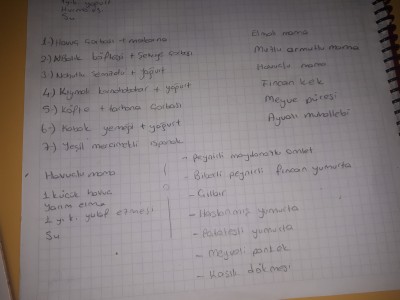 yoğurt
Su
1.) Havuç çorbası + makarna
2.) Mibzik köftesi + Sebzeli çorbası
3.) Nohutlu Semizotu + yoğurt
4.) Kıymalı karnabahar + yoğurt
5.) Köfte + tarhana çorbası
6-) Kabak yemeği + yoğurt
7-) Yeşil mercimekli ıspanak
Elmalı mama
Muzlu armutlu mama
Havuçlu mama
Fincan kek
Meyve püresi
Ayvalı muhallebi
Havuçlu mama
1 küçük havuç
Yarım elma
1 y.k. yulaf ezmesi
Su
- Peynirli maydanozlu omlet
- Biberli peynirli fincan yumurta
- Çılbır
- Haşlanmış yumurta
- Patatesli yumurta
- Meyveli pankek
- Kaşık dökmesi